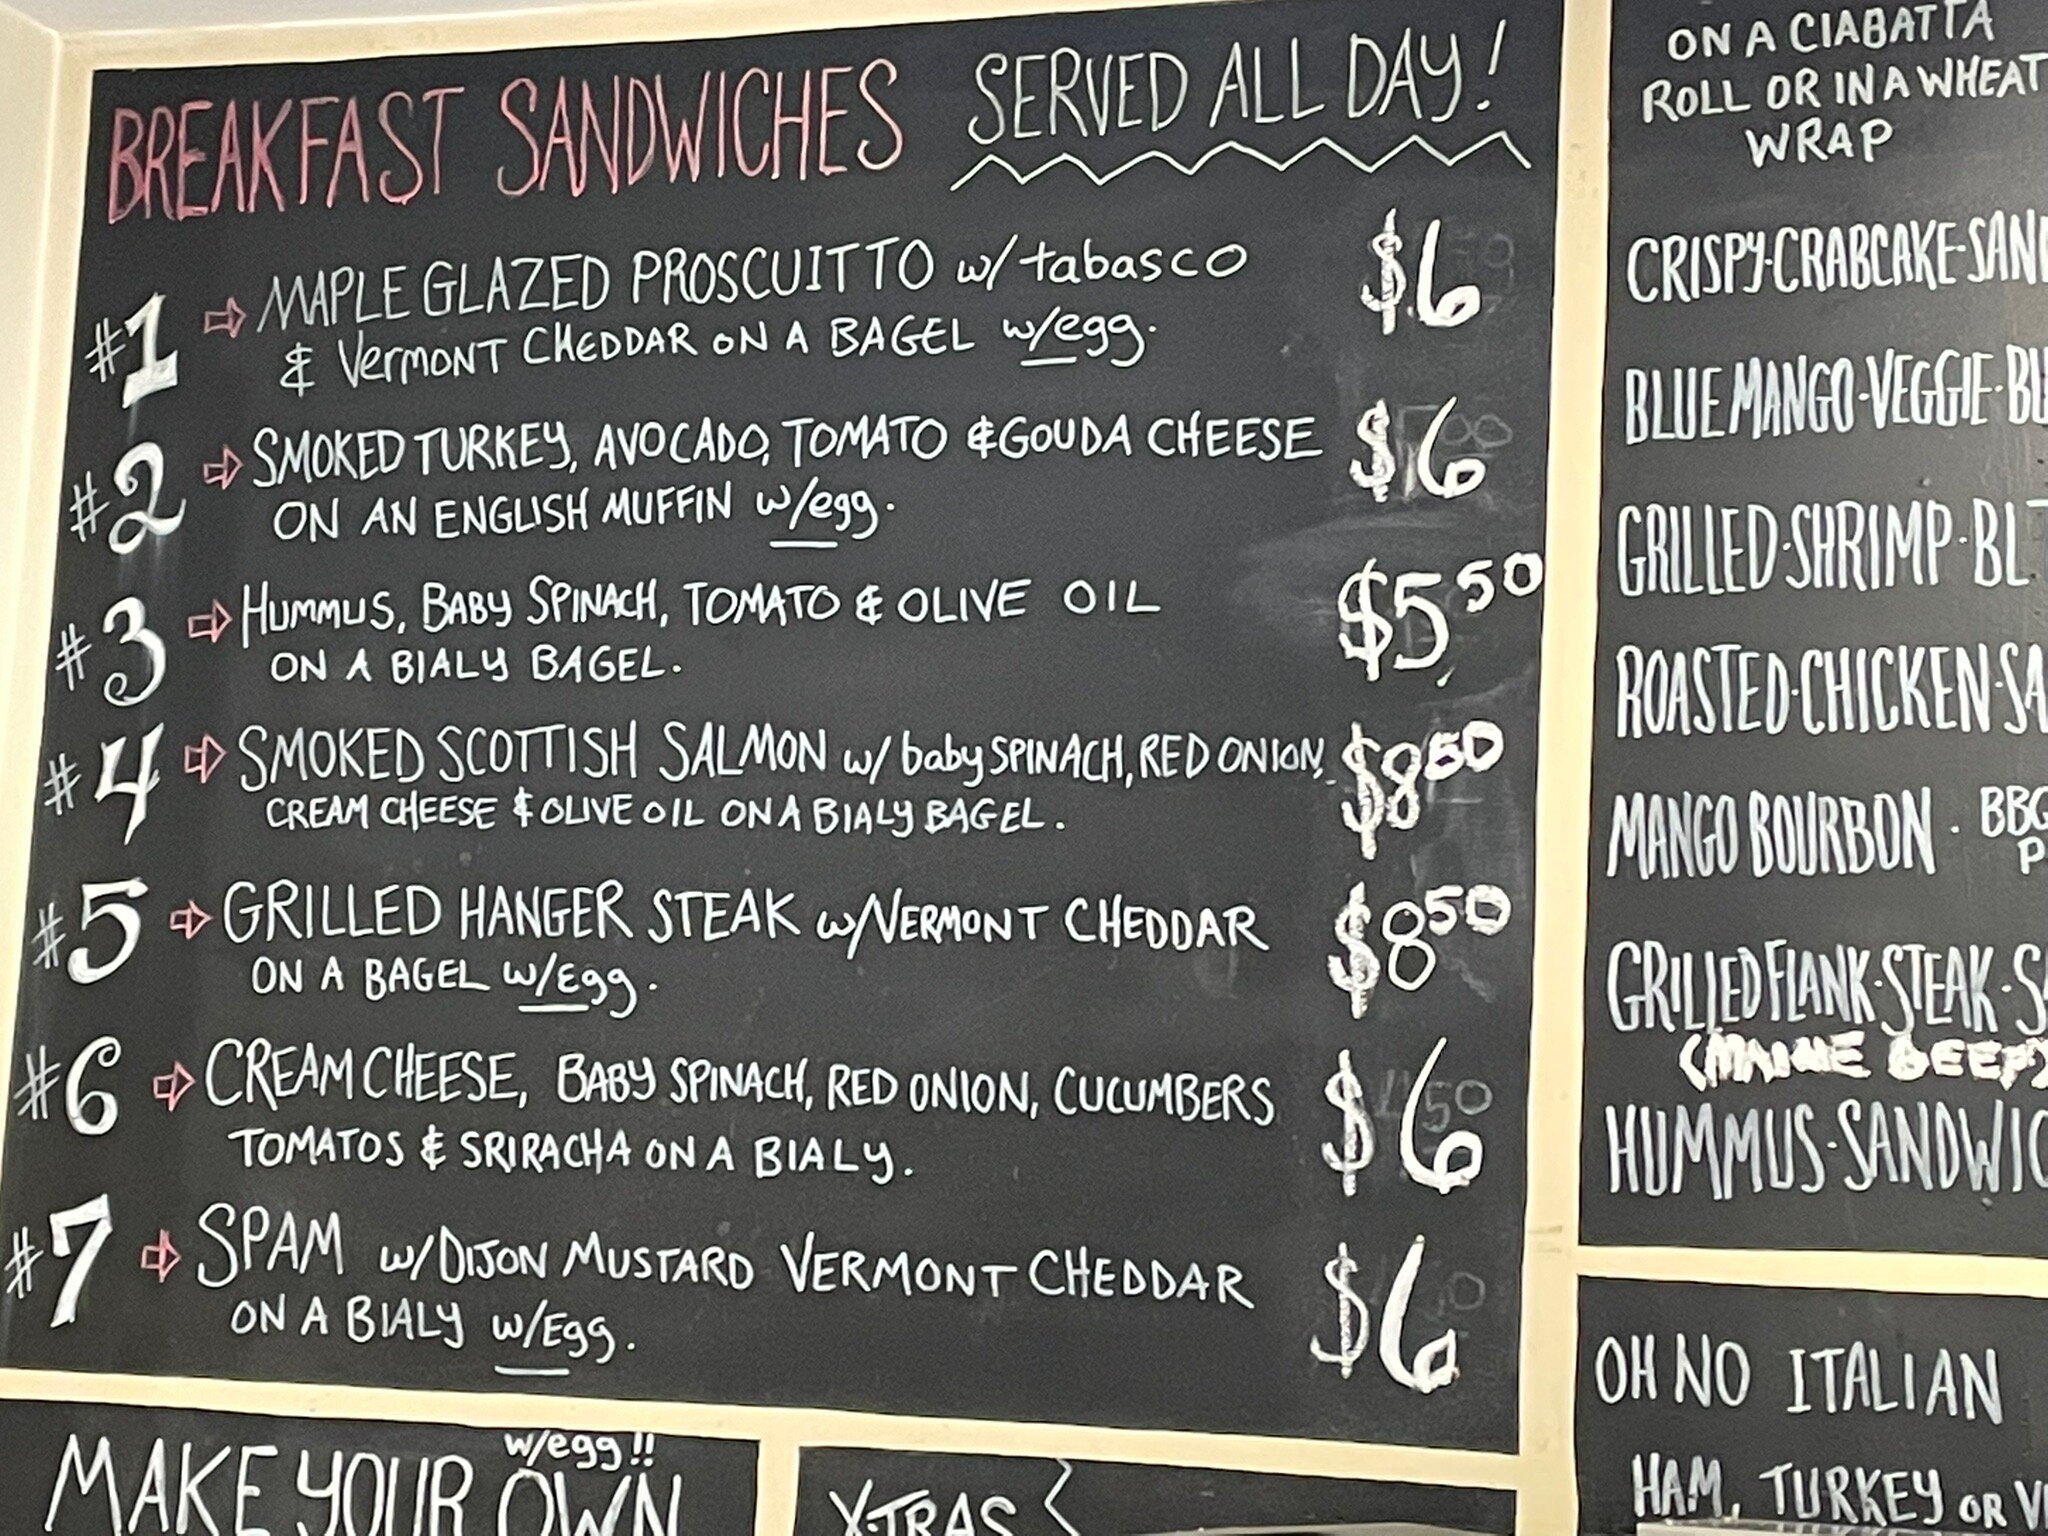 BREAKFAST SANDWICHES SERVED ALL DAY!
#1 ⇨ MAPLE GLAZED PROSCUITTO w/ tabasco $6
& Vermont CHEDDAR ON A BAGEL w/egg.
#2 ⇨ SMOKED TURKEY, AVOCADO, TOMATO & GOUDA CHEESE $6
ON AN ENGLISH MUFFIN w/egg.
#3 ⇨ HUMMUS, BABY SPINACH, TOMATO & OLIVE OIL $5.50
ON A BIALY BAGEL.
#4 ⇨ SMOKED SCOTTISH SALMON w/ baby SPINACH, RED ONION, $8.50
CREAM CHEESE & OLIVE OIL ON A BIALY BAGEL.
#5 ⇨ GRILLED HANGER STEAK w/VERMONT CHEDDAR $8.50
ON A BAGEL w/Egg.
#6 ⇨ CREAM CHEESE, BABY SPINACH, RED ONION, CUCUMBERS $6
TOMATOS & SRIRACHA ON A BIALY.
#7 ⇨ SPAM w/DIJON MUSTARD VERMONT CHEDDAR $6
ON A BIALY w/Egg.
w/egg!!
MAKE YOUR OWN
X-TRAS
ON A CIABATTA
ROLL OR IN A WHEAT
WRAP
CRISPY·CRABCAKE·SAN
BLUE MANGO·VEGGIE·BU
GRILLED·SHRIMP·BLT
ROASTED·CHICKEN·SA
MANGO BOURBON · BBQ
P
GRILLED FLANK·STEAK·SA
(MAINE BEEF)
HUMMUS·SANDWIC
OH NO ITALIAN
HAM, TURKEY OR V